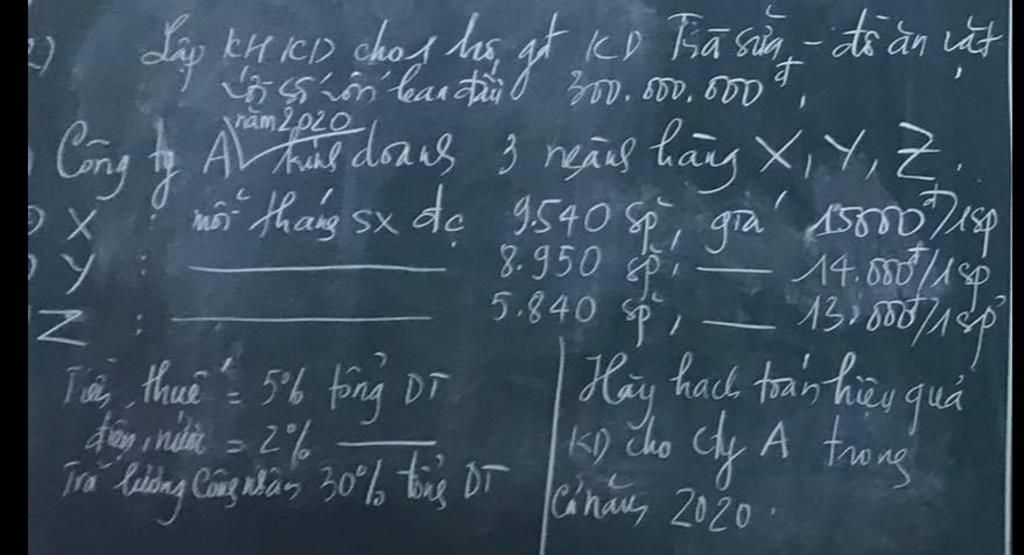 2) Lập KHKD cho 1 hộ gđ KD Trà sữa, - đồ ăn vặt
với số vốn ban đầu 300.000.000đ,
năm 2020
Công ty A kinh doanh 3 ngành hàng X, Y, Z.
X : mỗi tháng sx đc 9.540 sp, giá 15000đ/1sp
Y : ——— 8.950 sp, — 14.000đ/1sp
Z : ——— 5.840 sp, — 13.000đ/1sp
Tiền thuế = 5% tổng DT
điện, nước = 2% ———
Trả lương công nhân 30% tổng DT
Hãy hạch toán hiệu quả
KD cho cty A trong
cả năm 2020.